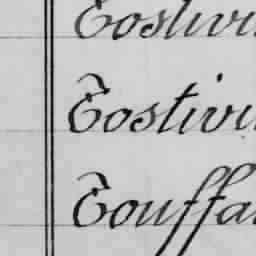 Tostivi
Tostivi
Touffa